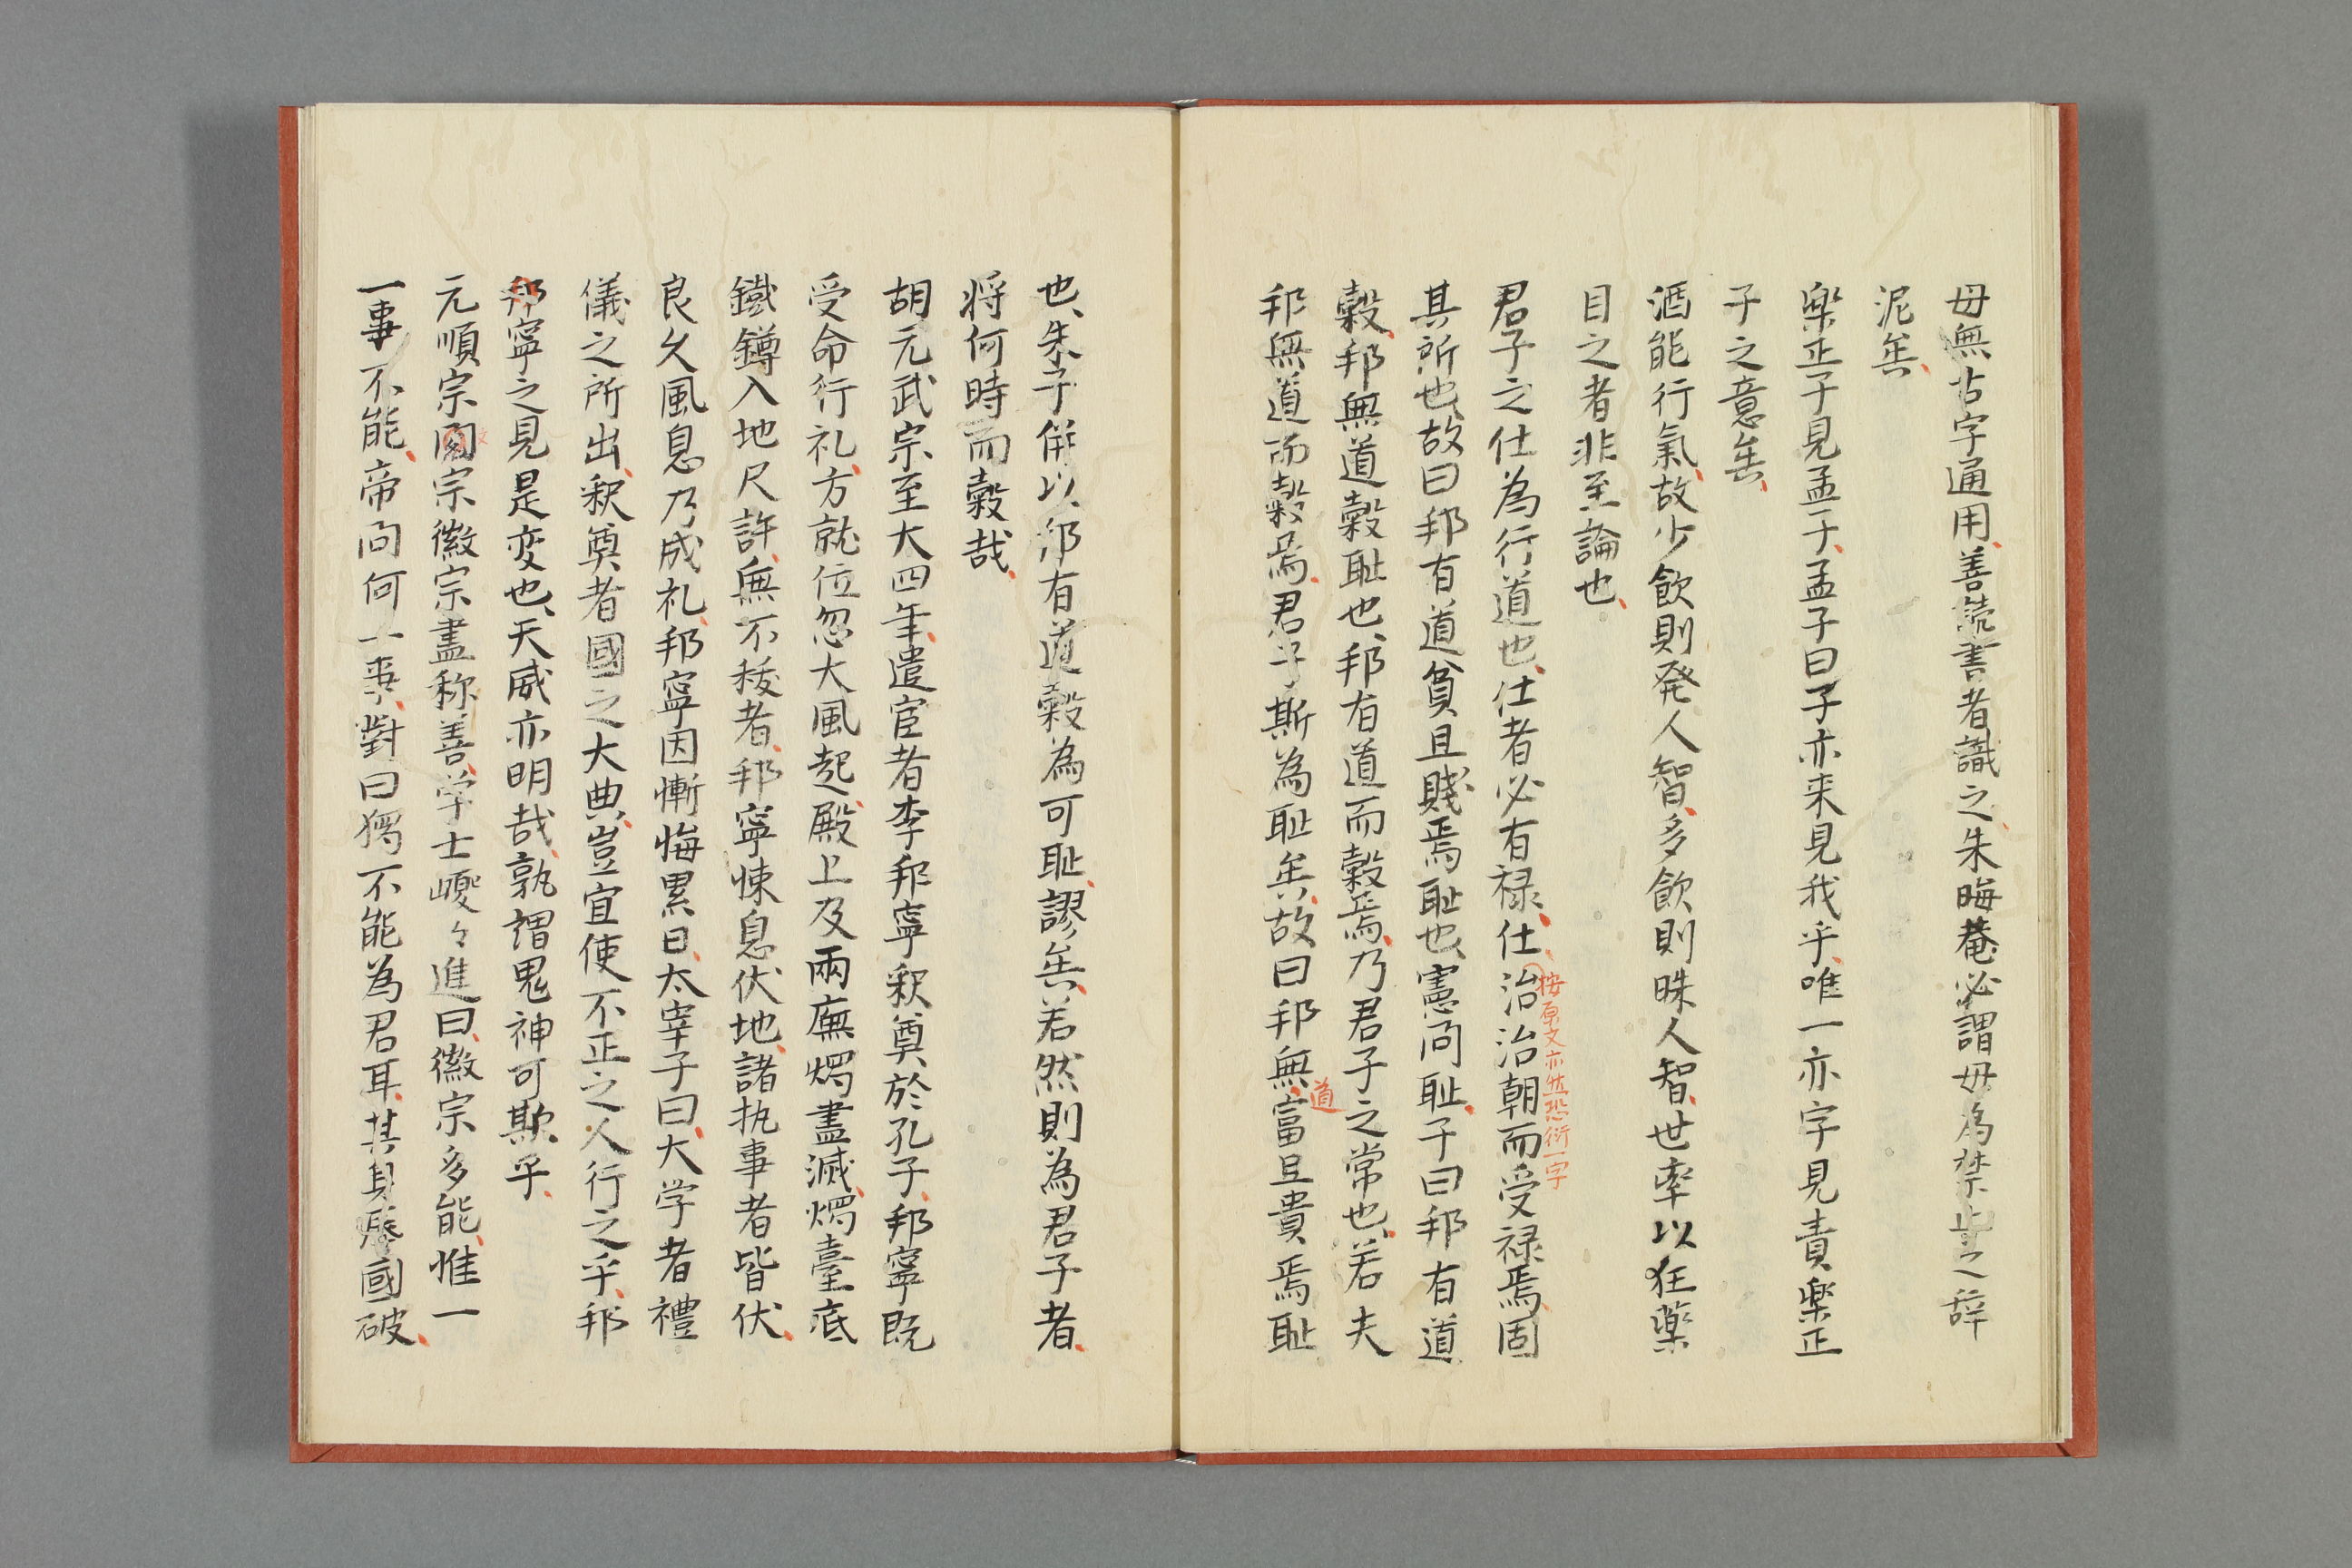 毋無古字通用、善読書者識之、朱晦菴必謂毋為禁止之辞
泥矣、
楽正子見孟子、孟子曰子亦来見我乎、唯一亦字見責楽正
子之意矣、
酒能行氣、故少飲則発人智、多飲則昧人智、世率以狂薬
目之者非至論也、
君子之仕為行道也、仕者必有禄、仕治治朝而受禄焉、固
按原文亦然恐衍一字
其所也、故曰邦有道貧且賤焉恥也、憲問恥、子曰邦有道
穀、邦無道穀恥也、邦有道而穀焉、乃君子之常也、若夫
邦無道而穀焉、君子斯為恥矣、故曰邦無、富且貴焉恥
道
也、朱子併以邦有道穀為可恥、謬矣、若然則為君子者、
将何時而穀哉、
胡元武宗至大四年、遣宦者李邦寧釈奠於孔子、邦寧既
受命行礼、方就位忽大風起、殿上及両廡燭盡滅、燭臺底
鐵鐏入地尺許、無不抜者、邦寧悚息伏地、諸執事者皆伏、
良久風息乃成礼、邦寧因慚悔累日、太宰子曰、大学者禮
儀之所出、釈奠者國之大典、豈宜使不正之人行之乎、邦
邦寧之見是変也、天威亦明哉、孰謂鬼神可欺乎、
元順宗閣宗徽宗畫称善、学士巙々進曰、徽宗多能、惟一
文
一事不能、帝問何一事、對曰獨不能為君耳、其身辱國破、